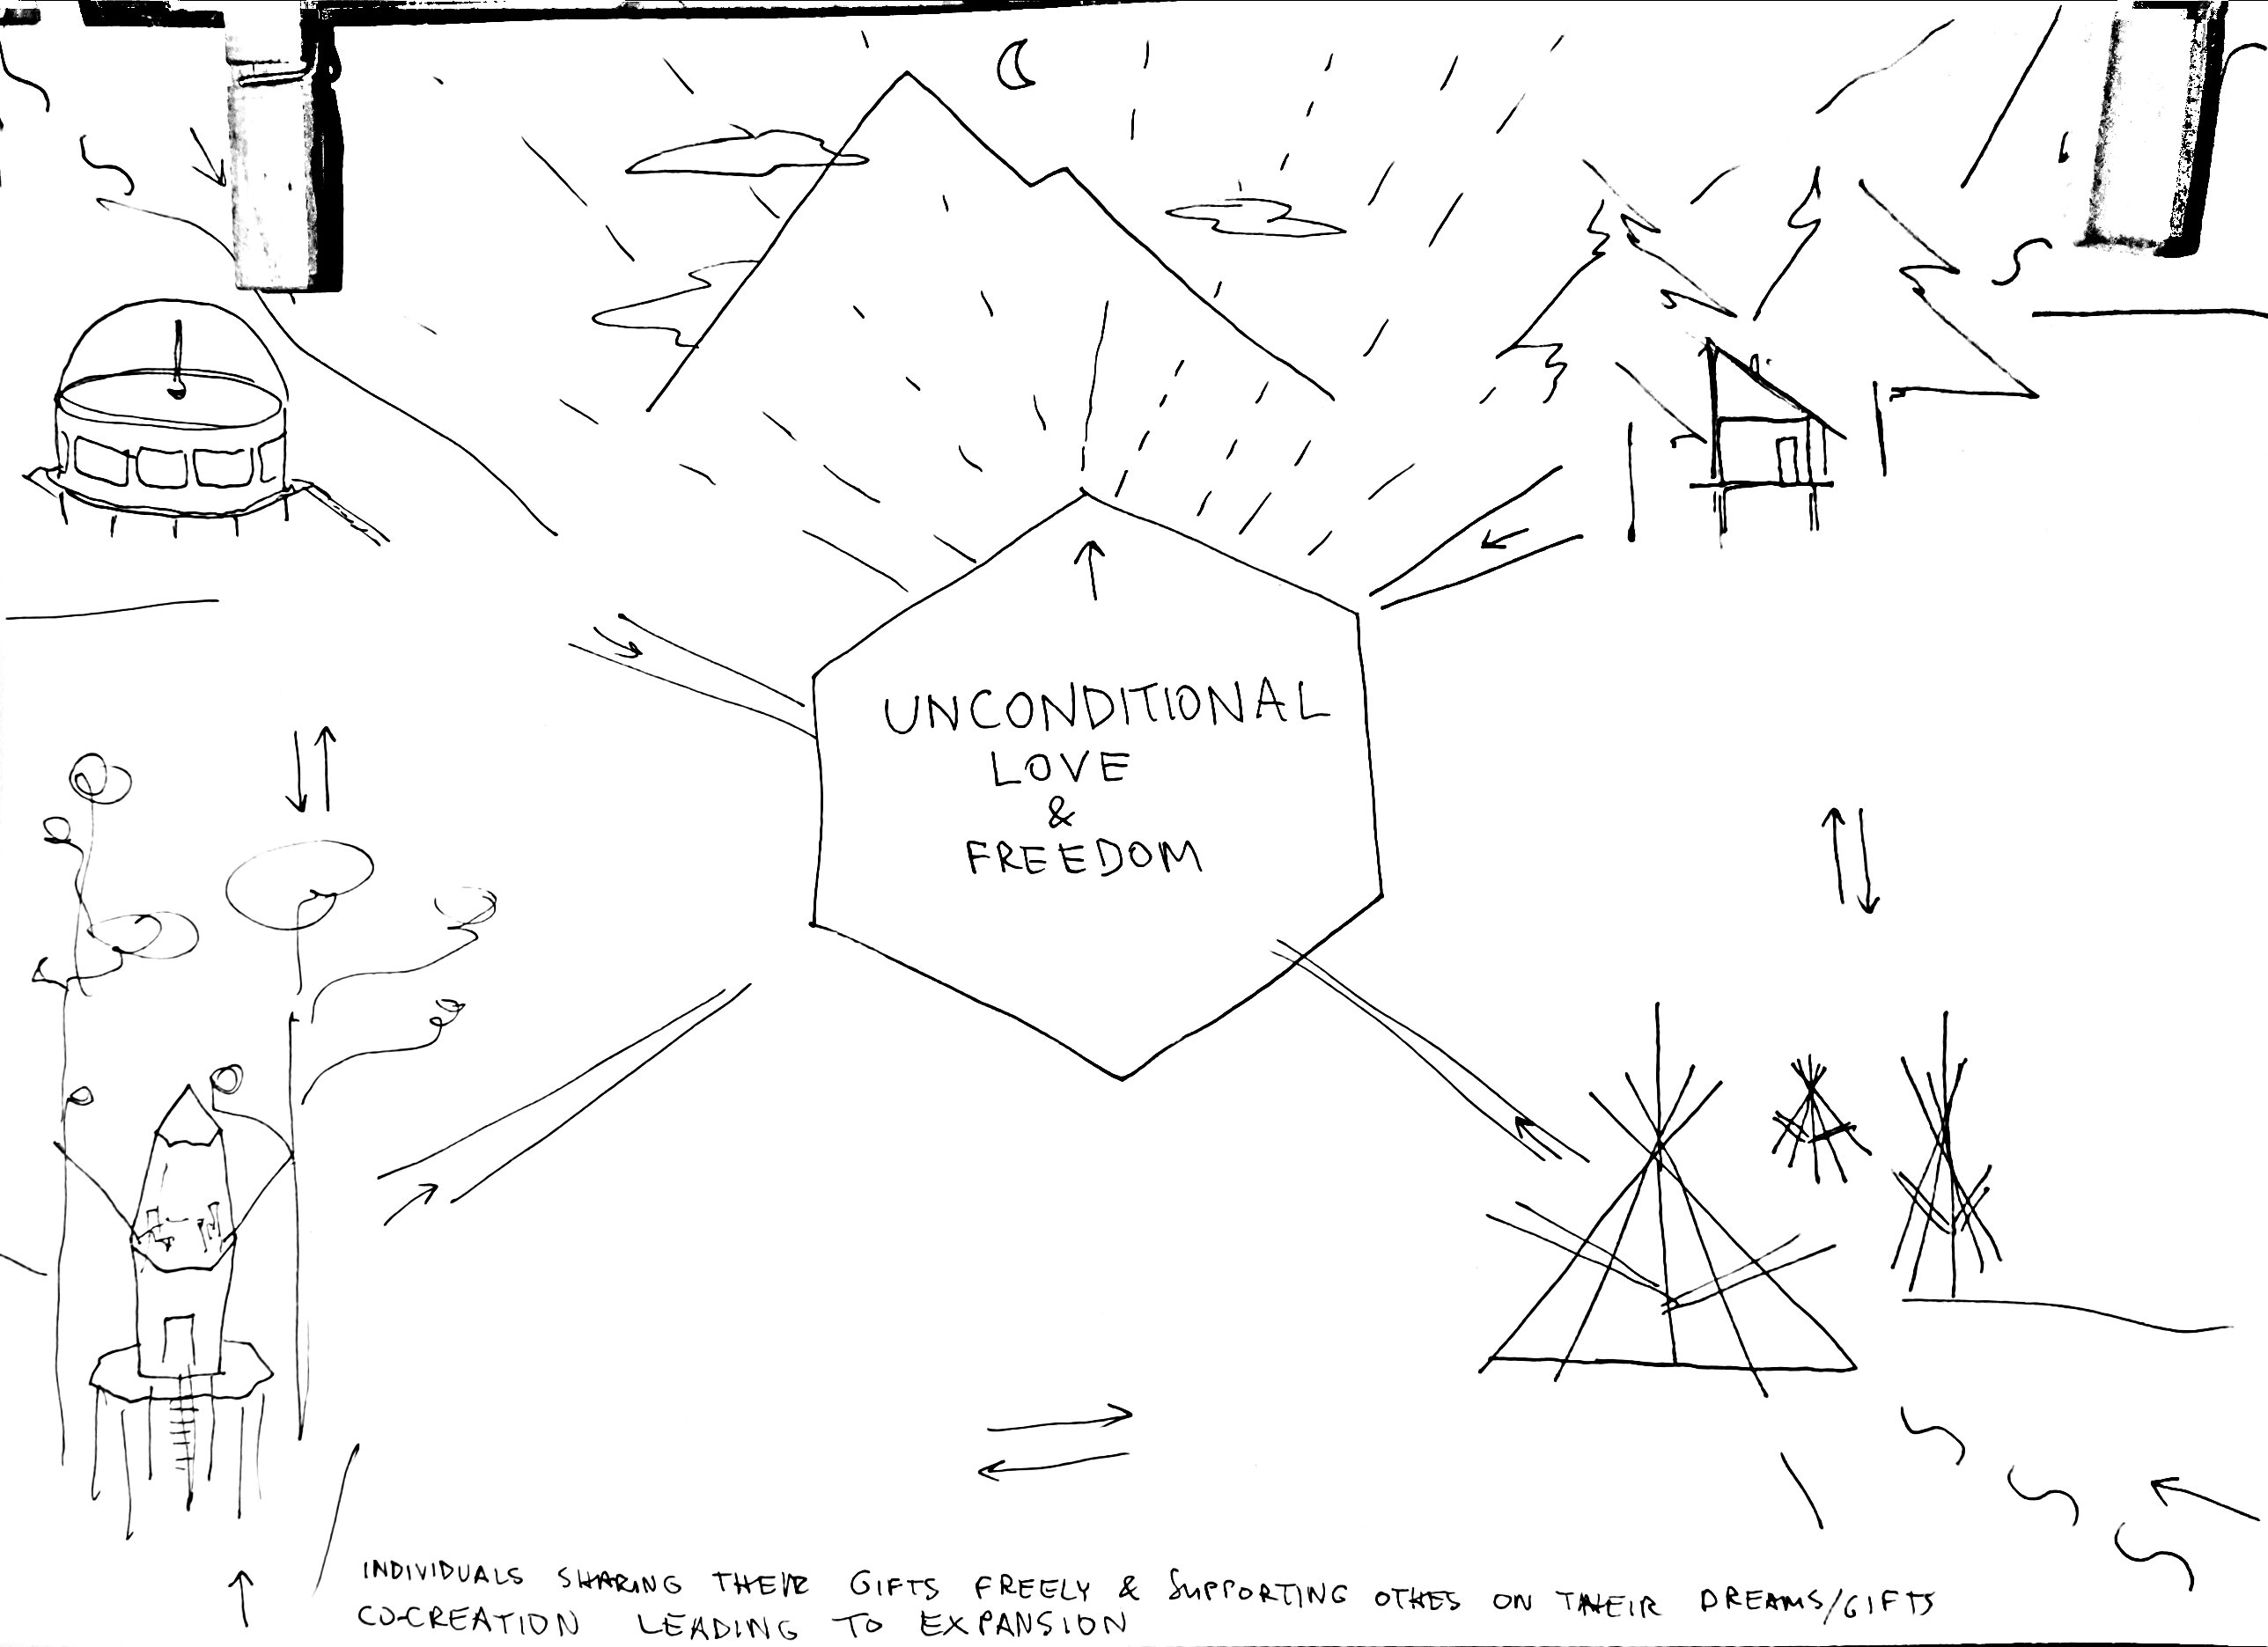 UNCONDITIONAL
LOVE
&
FREEDOM
INDIVIDUALS SHARING THEIR GIFTS FREELY & SUPPORTING OTHES ON THEIR DREAMS/GIFTS
CO-CREATION LEADING TO EXPANSION